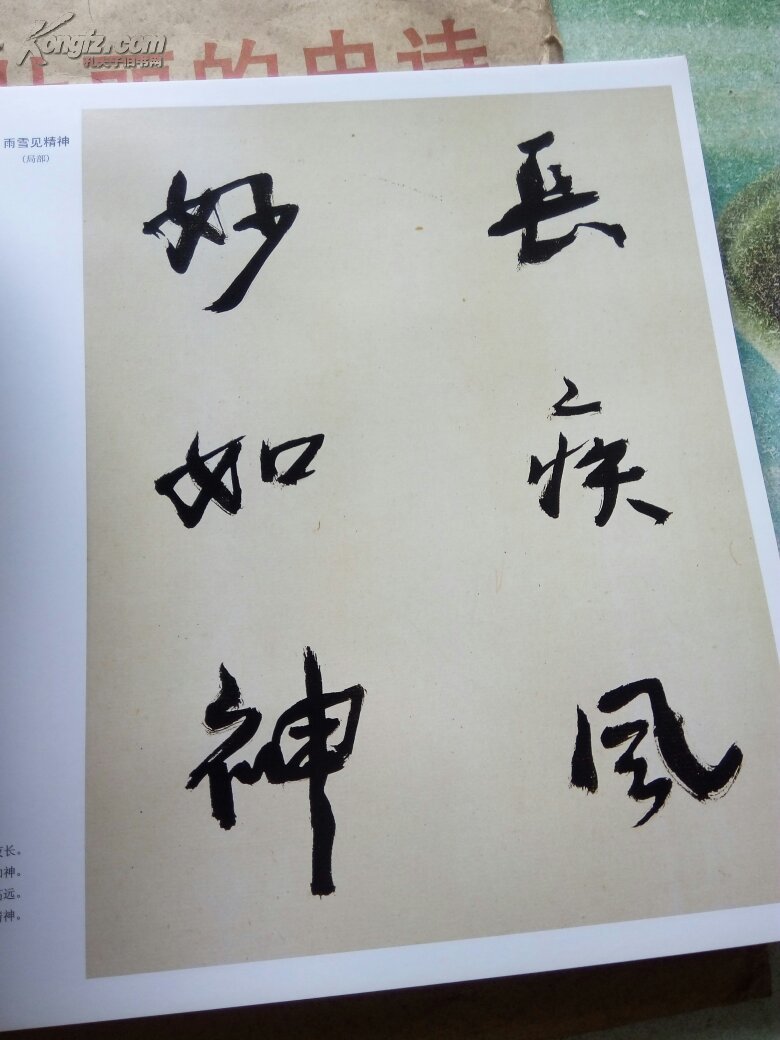 Kongfz.com
孔夫子旧书网
的史诗
雨雪见精神
(局部)
長疾风
妙如神
长。
神。
远。
神。